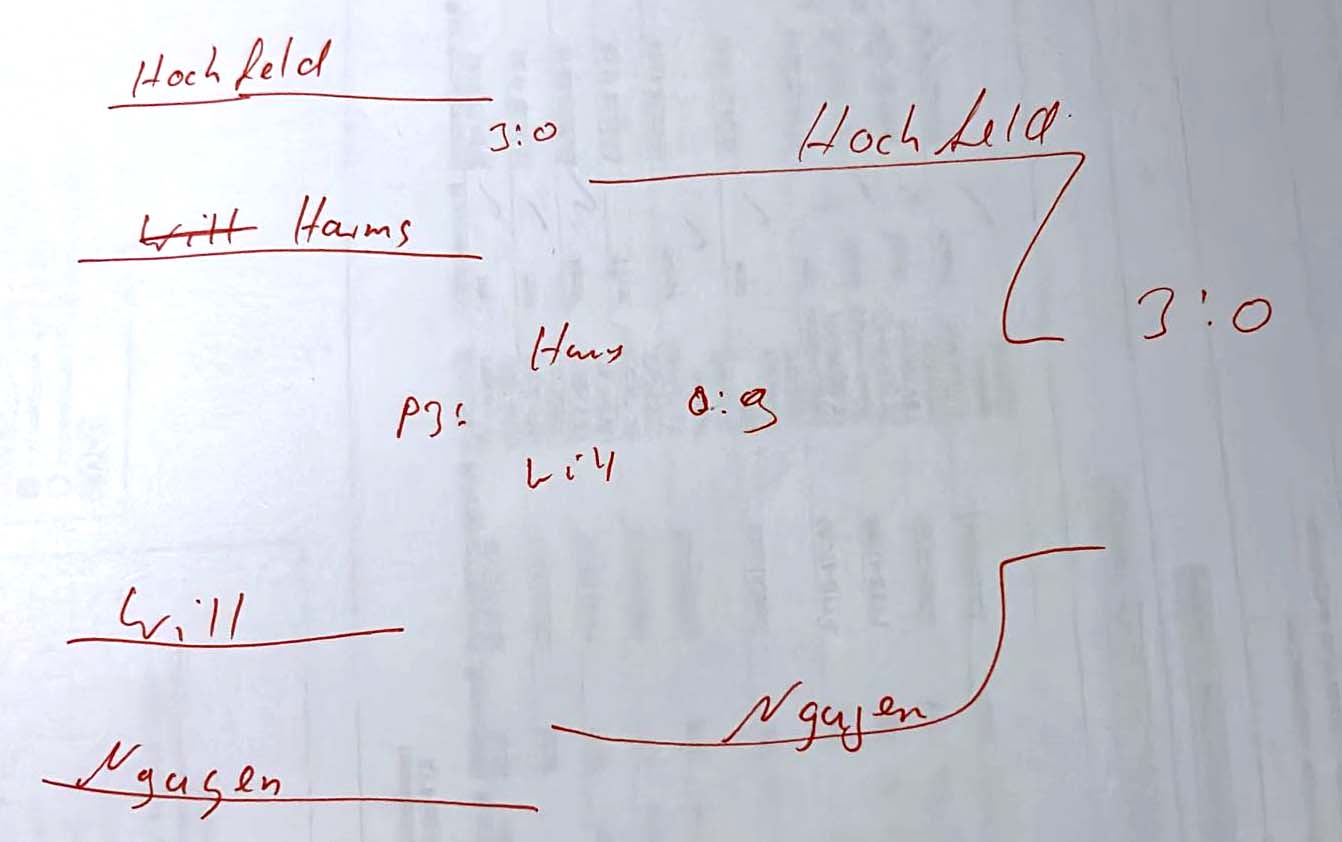 Hochfeld
3:0
Hochfeld
Will Harms
3:0
Harms
P3:
Will
Will
Nguyen
Nguyen